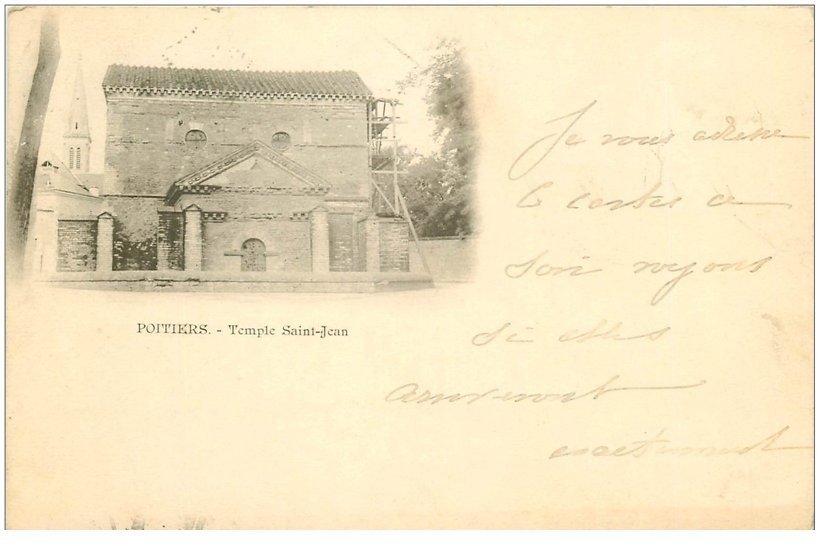 POITIERS. - Temple Saint-Jean
Je vous adresse
6 cartes ce
soir voyons
si elles
arriveront
exactement